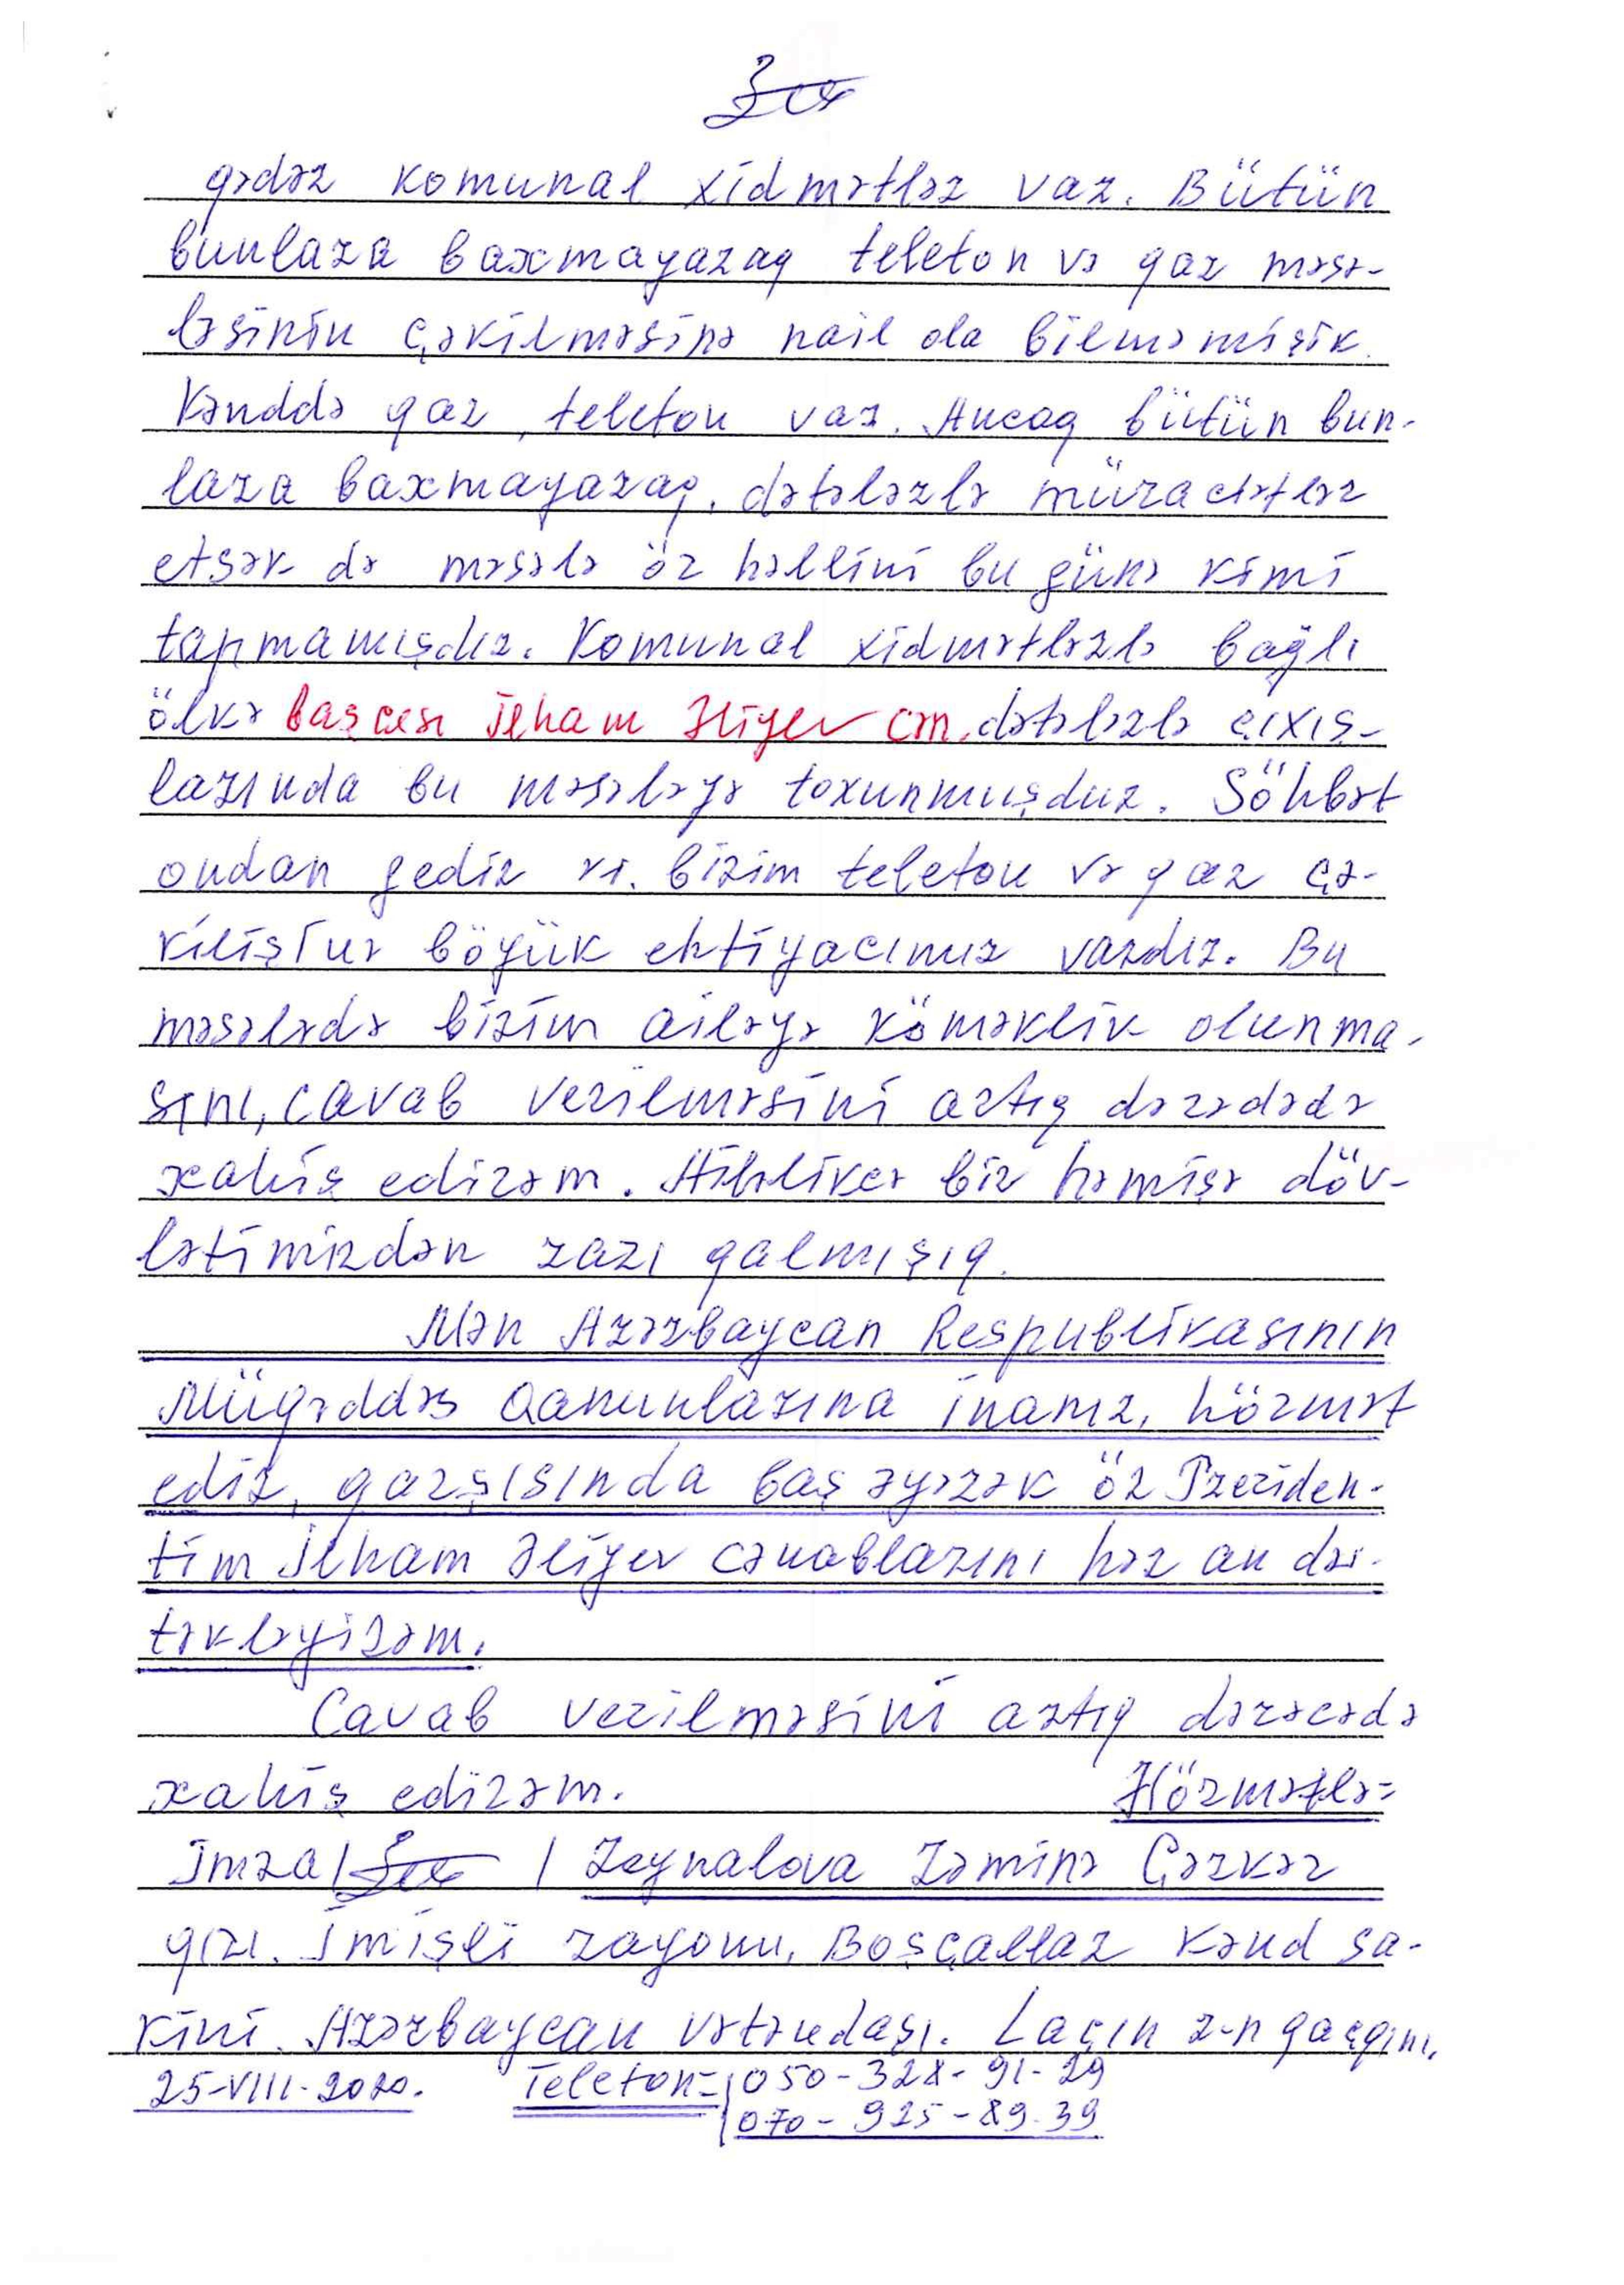 qədər komunal xidmətlər var. Bütün
bunlara baxmayaraq telefon və qaz məsə-
ləsinin çəkilməsinə nail ola bilməmişik.
Kənddə qaz, telefon var. Ancaq bütün bun-
lara baxmayaraq, dəfələrlə müraciətlər
etsək də məsələ öz həllini bu günə kimi
tapmamışdır. Komunal xidmətlərlə bağlı
ölkə başçısı İlham Əliyev cən. dəfələrlə çıxış-
larında bu məsələyə toxunmuşdur. Söhbət
ondan gedir ki. bizim telefon və qaz çə-
kilişinə böyük ehtiyacımız vardır. Bu
məsələdə bizim ailəyə köməklik olunma-
sını, cavab verilməsini artıq dərədədə
xahiş edirəm. Ailəlikcə biz həmişə döv-
lətimizdən razı qalmışıq.
Mən Azərbaycan Respublikasının
Müqəddəs Qanunlarına inanır, hörmət
edir, qarşısında baş əyərək öz Preziden-
tim İlham Əliyev cənablarını hər an dəs-
təkləyirəm.
Cavab verilməsini artıq dərəcədə
xahiş edirəm. Hörmətlə=
İmza / / Zeynalova Zəminə Çərkəz
qızı. İmişli rayonu, Boşçallar kənd sa-
kini. Azərbaycan vətəndaşı. Laçın r-n qaçqını.
25-VIII-2020. Telefon= 050-328-91-29
070-925-89-39